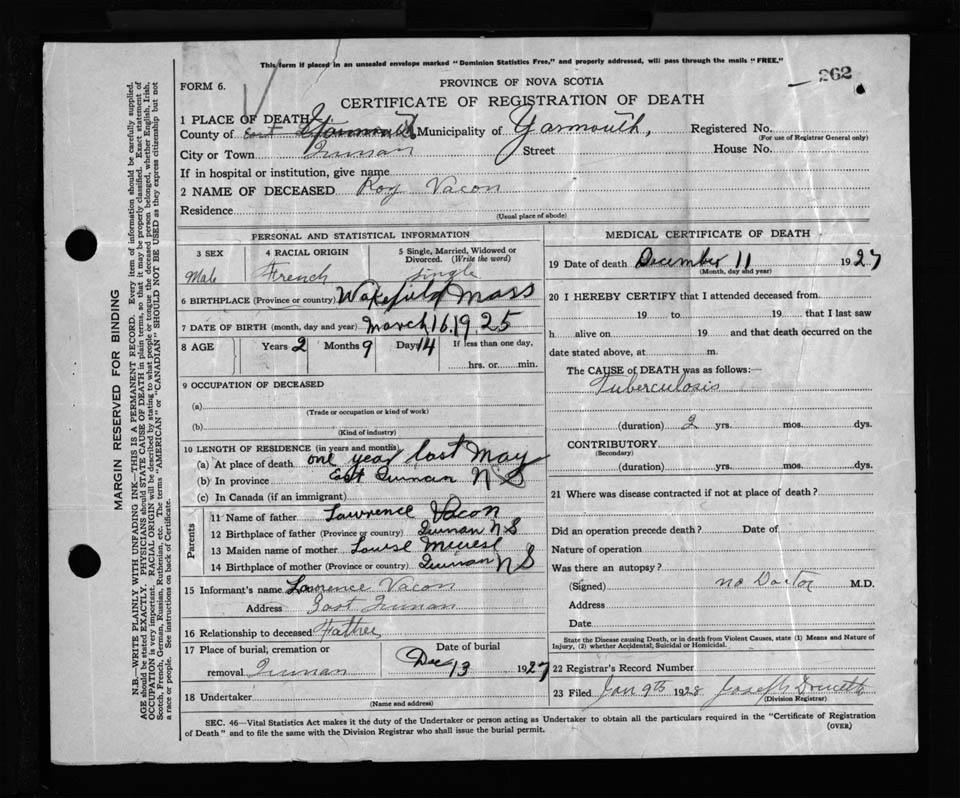 This form if placed in an unsealed envelope marked "Dominion Statistics Free," and properly addressed, will pass through the mails "FREE."
FORM 6.
PROVINCE OF NOVA SCOTIA
262
CERTIFICATE OF REGISTRATION OF DEATH
1 PLACE OF DEATH
County of East Yarmouth Municipality of Yarmouth, Registered No.
(For use of Registrar General only)
City or Town Quinan Street House No.
If in hospital or institution, give name
2 NAME OF DECEASED Roy Vacon
Residence
(Usual place of abode)
PERSONAL AND STATISTICAL INFORMATION
3 SEX 4 RACIAL ORIGIN 5 Single, Married, Widowed or Divorced. (Write the word)
Male French Single
6 BIRTHPLACE (Province or country) Wakefield Mass
7 DATE OF BIRTH (month, day and year) March 16, 1925
8 AGE Years 2 Months 9 Days 14 If less than one day,
hrs. or min.
9 OCCUPATION OF DECEASED
(a)
(Trade or occupation or kind of work)
(b)
(Kind of industry)
10 LENGTH OF RESIDENCE (in years and months)
(a) At place of death one year last May
(b) In province East Quinan N S
(c) In Canada (if an immigrant)
Parents
11 Name of father Lawrence Vacon
12 Birthplace of father (Province or country) Quinan N S
13 Maiden name of mother Louise
14 Birthplace of mother (Province or country) Quinan N S
15 Informant's name Lawrence Vacon
Address East Quinan
16 Relationship to deceased Father
17 Place of burial, cremation or removal Quinan
Date of burial
Dec 13 1927
18 Undertaker
(Name and address)
MEDICAL CERTIFICATE OF DEATH
19 Date of death December 11 1927
(Month, day and year)
20 I HEREBY CERTIFY that I attended deceased from
19 to 19 that I last saw
h alive on 19 and that death occurred on the
date stated above, at m.
The CAUSE of DEATH was as follows:—
Tuberculosis
(duration) 2 yrs. mos. dys.
CONTRIBUTORY
(Secondary)
(duration) yrs. mos. dys.
21 Where was disease contracted if not at place of death?
Did an operation precede death? Date of
Nature of operation
Was there an autopsy?
(Signed) no Doctor M.D.
Address
Date
State the Disease causing Death, or in death from Violent Causes, state (1) Means and Nature of
Injury, (2) whether Accidental, Suicidal or Homicidal.
22 Registrar's Record Number
23 Filed Jan 9th 1928 Joseph
(Division Registrar)
SEC. 46—Vital Statistics Act makes it the duty of the Undertaker or person acting as Undertaker to obtain all the particulars required in the "Certificate of Registration
of Death" and to file the same with the Division Registrar who shall issue the burial permit.
(OVER)
MARGIN RESERVED FOR BINDING
N.B.—WRITE PLAINLY WITH UNFADING INK—THIS IS A PERMANENT RECORD. Every item of information should be carefully supplied.
AGE should be stated EXACTLY. PHYSICIANS should STATE CAUSE OF DEATH in plain terms, so that it may be properly classified. Exact statement of
OCCUPATION is very important. RACIAL ORIGIN will be described by stating to what people or tongue the deceased person belonged, whether English, Irish,
Scotch, French, German, Russian, Ruthenian, etc. The terms "AMERICAN" or "CANADIAN" SHOULD NOT BE USED as they express citizenship but not
a race or people. See instructions on back of Certificate.